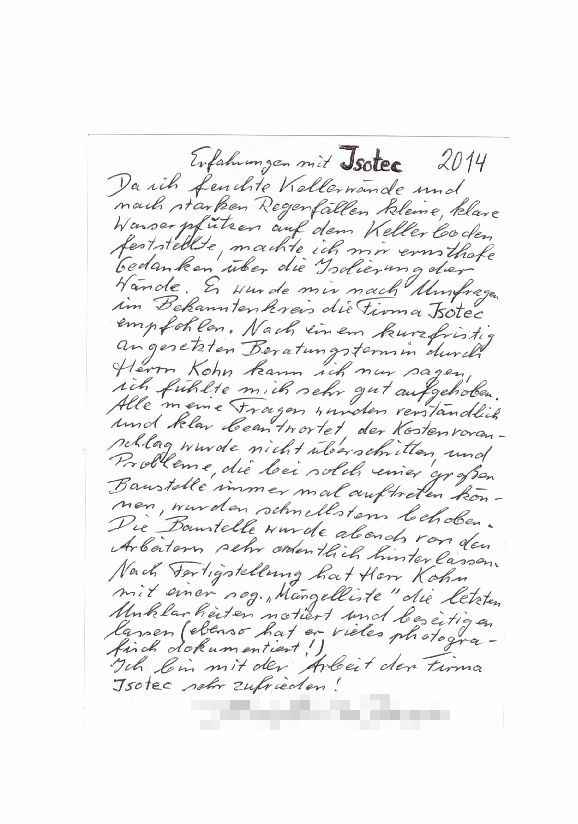 Erfahrungen mit Isotec 2014
Da ich feuchte Kellerwände und
nach starken Regenfällen kleine, klare
Wasserpfützen auf dem Kellerboden
feststellte, machte ich mir ernsthafte
Gedanken über die Isolierung der
Wände. Es wurde mir nach Umfragen
im Bekanntenkreis die Firma Isotec
empfohlen. Nach einem kurzfristig
angesetzten Beratungstermin durch
Herrn Kohn kann ich nur sagen,
ich fühlte mich sehr gut aufgehoben.
Alle meine Fragen wurden verständlich
und klar beantwortet, der Kostenvoran-
schlag wurde nicht überschritten, und
Probleme, die bei solch einer großen
Baustelle immer mal auftreten kön-
nen, wurden schnellstens behoben.
Die Baustelle wurde abends von den
Arbeitern sehr ordentlich hinterlassen.
Nach Fertigstellung hat Herr Kohn
mit einer sog. „Mängelliste" die letzten
Unklarheiten notiert und beseitigen
lassen (ebenso hat er vieles photogra-
fisch dokumentiert!)
Ich bin mit der Arbeit der Firma
Isotec sehr zufrieden!